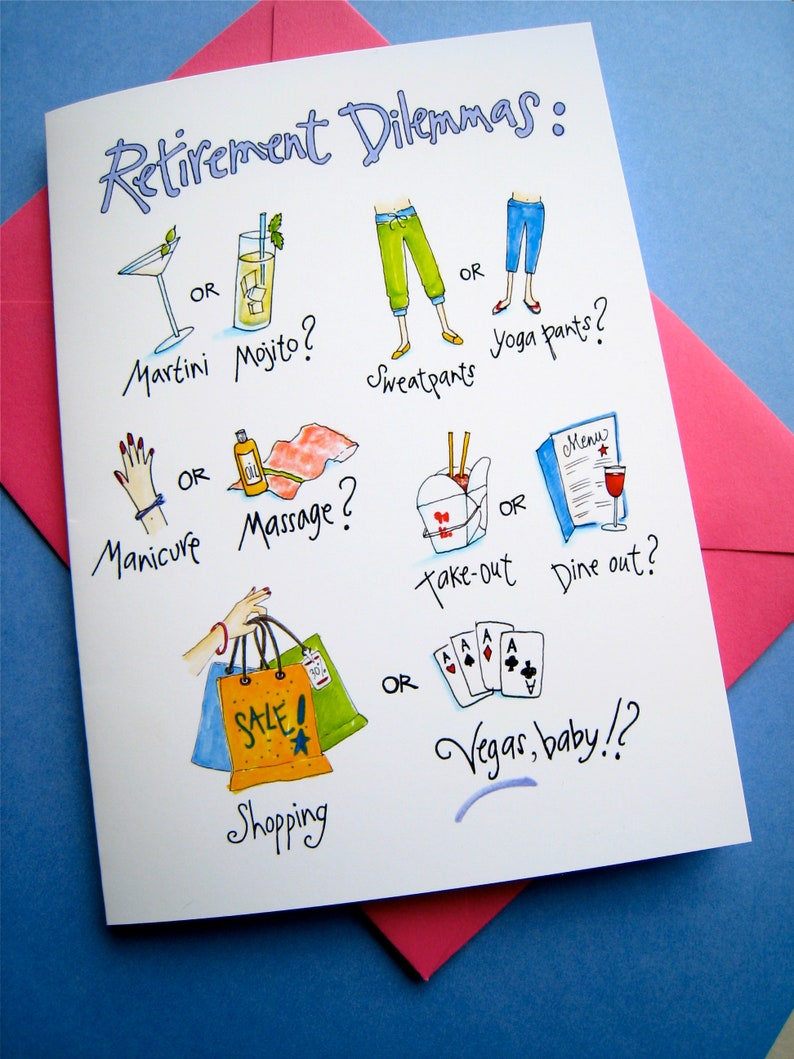 Retirement Dilemmas:
Martini OR Mojito?
Sweatpants OR Yoga pants?
Manicure OR oil Massage?
Take-out OR Menu Dine out?
SALE! 30%
Shopping OR A A A A A Vegas, baby!?